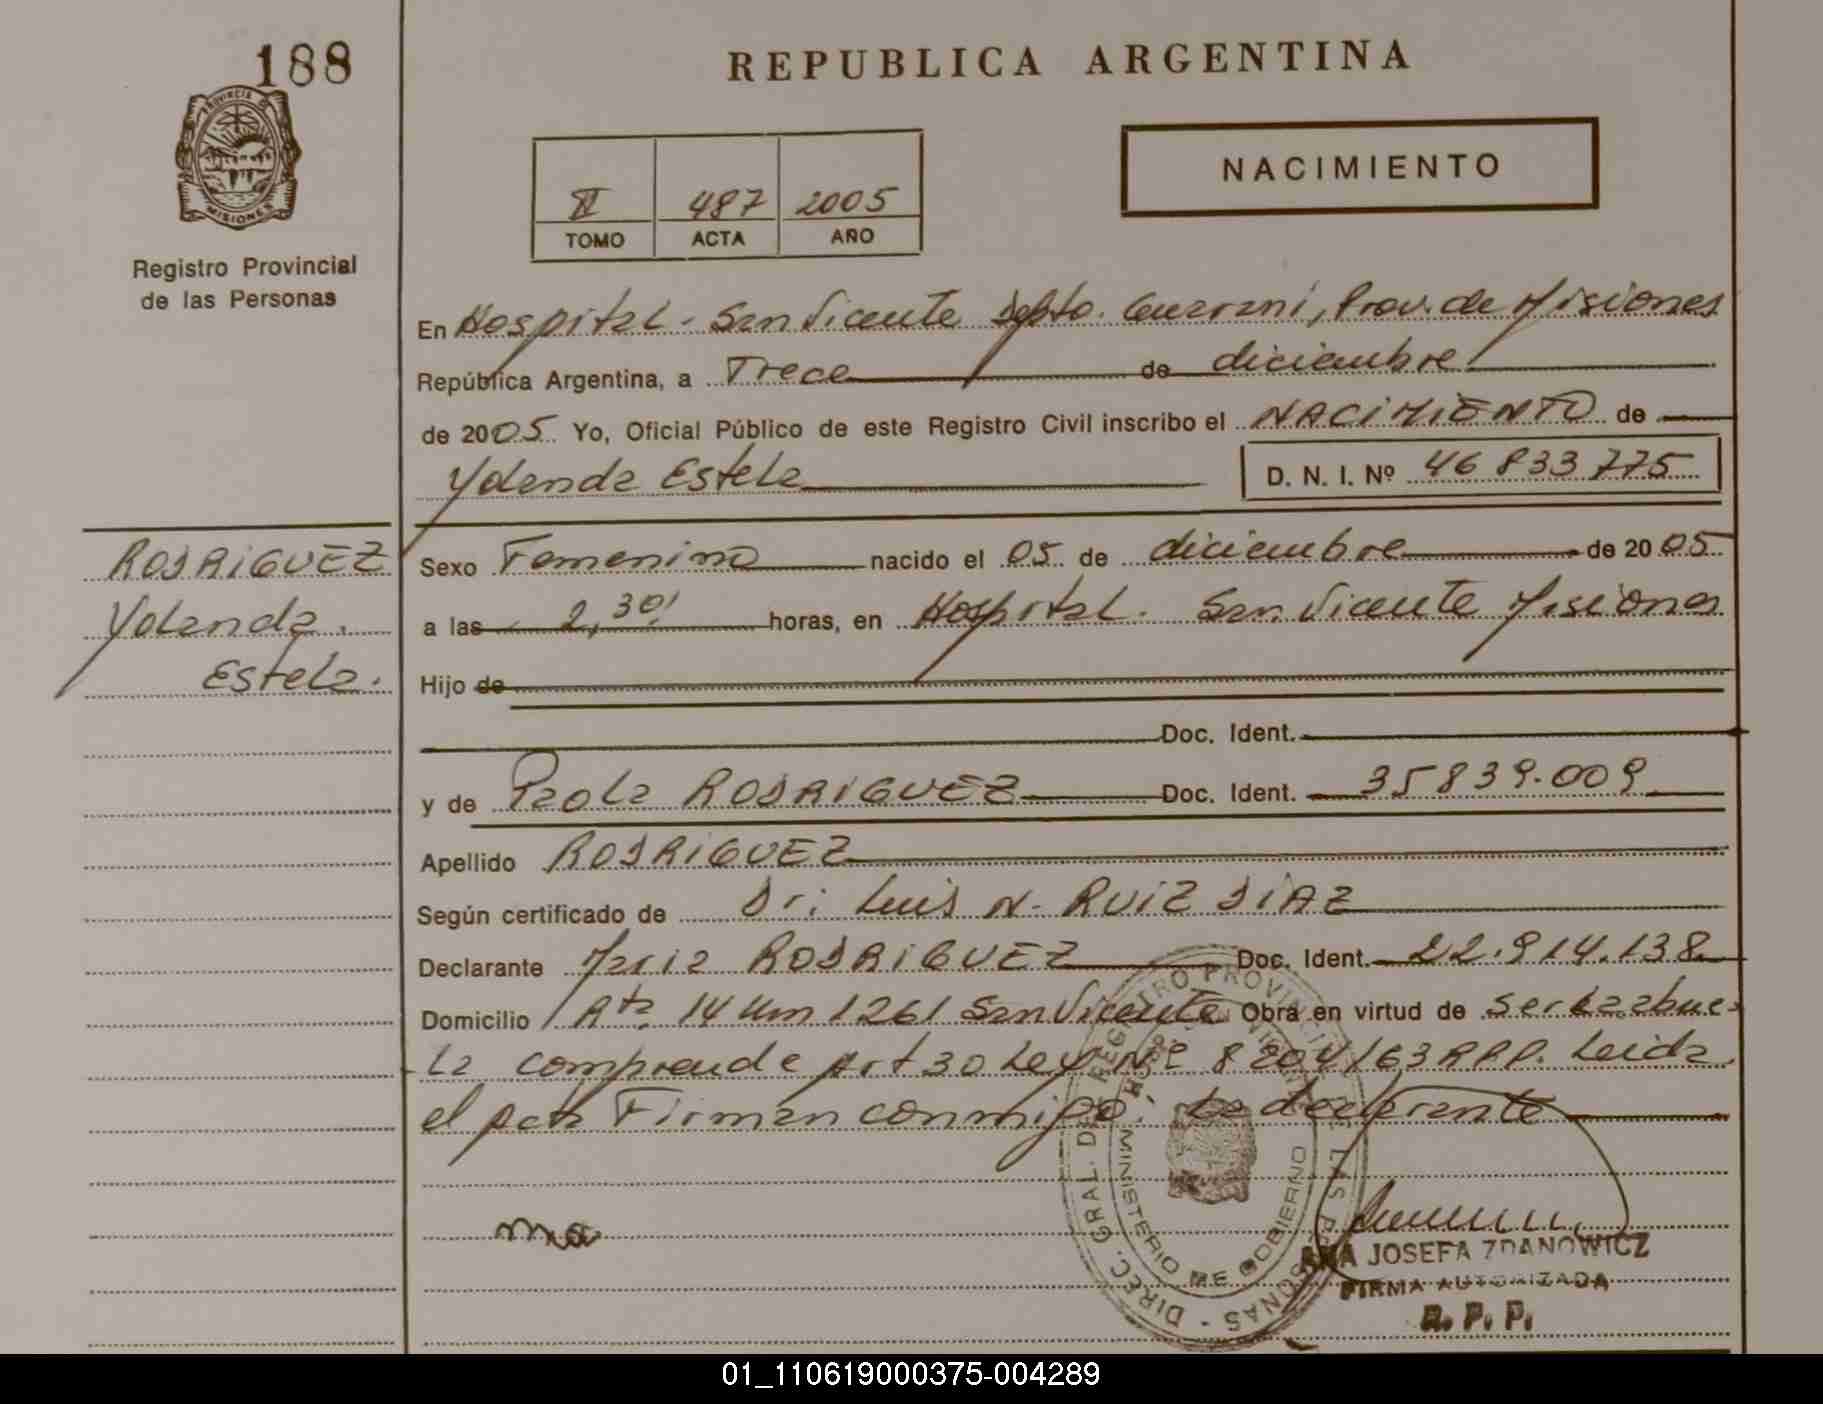 188
PROVINCIA DE
MISIONES
Registro Provincial
de las Personas
REPUBLICA ARGENTINA
II 487 2005
TOMO ACTA AÑO
NACIMIENTO
En Hospital - San Vicente Dpto. Guarani, Prov. de Misiones
República Argentina, a Trece de diciembre
de 2005 Yo, Oficial Público de este Registro Civil inscribo el NACIMIENTO de
Yolanda Estela D. N. I. Nº 46 833 775
RODRIGUEZ
Yolanda.
Estela.
Sexo Femenino nacido el 05 de diciembre de 2005
a las 2,30! horas, en Hospital. San Vicente Misiones
Hijo de
Doc. Ident.
y de Paola RODRIGUEZ Doc. Ident. 35839.009
Apellido RODRIGUEZ
Según certificado de Dr: Luis N. RUIZ DIAZ
Declarante Maria RODRIGUEZ Doc. Ident. 22.914.138
Domicilio Rta. 14 Km 1261 San Vicente Obra en virtud de ser la abue-
la comprende Art 30 Ley Nº 8204/63 RPP. Leida
el acta Firman conmigo. La declarante
DIREC. GRAL. DEL REGISTRO PROVINCIAL DE LAS PERSONAS -
MINISTERIO DE GOBIERNO
ANA JOSEFA ZDANOWICZ
FIRMA AUTORIZADA
R. P. P.
01_110619000375-004289